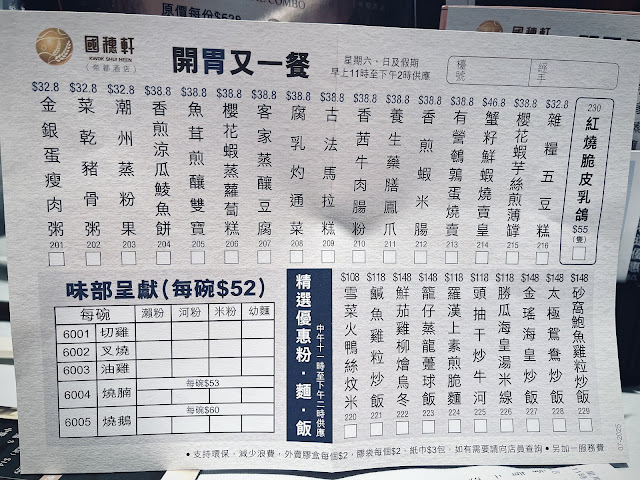 原價每份$528
COMBO
國穗軒
KWOK SHUI HEEN
(荣都酒店)
開胃又一餐
星期六、日及假期
早上11時至下午2時供應
檯號
經手
$32.8 金銀蛋瘦肉粥 201
$32.8 菜乾豬骨粥 202
$32.8 潮州蒸粉果 203
$38.8 香煎涼瓜鯪魚餅 204
$38.8 魚茸煎釀雙寶 205
$38.8 櫻花蝦蒸蘿蔔糕 206
$38.8 客家蒸釀豆腐 207
$38.8 腐乳灼通菜 208
$38.8 古法馬拉糕 209
$38.8 香茜牛肉腸粉 210
$38.8 養生藥膳鳳爪 211
$38.8 香煎蝦米腸 212
$38.8 有營鵪鶉蛋燒賣 213
$46.8 蟹籽鮮蝦燒賣皇 214
$38.8 櫻花蝦芋絲煎薄罉 215
$32.8 雜糧五豆糕 216
230 紅燒脆皮乳鴿 $55 (隻)
味部呈獻(每碗$52)
每碗 瀨粉 河粉 米粉 幼麵
6001 切雞
6002 叉燒
6003 油雞
6004 燒腩 每碗$53
6005 燒鵝 每碗$60
精選優惠粉·麵·飯
中午十一時至下午二時供應
$108 雪菜火鴨絲炆米 220
$118 鹹魚雞粒炒飯 221
$148 鮮茄雞柳燴烏冬 222
$148 籠仔蒸龍躉球飯 223
$128 羅漢上素煎脆麵 224
$118 頭抽干炒牛河 225
$118 勝瓜海皇湯米線 226
$148 金瑤海皇炒飯 227
$148 太極鴛鴦炒飯 228
$148 砂窩鮑魚雞粒炒飯 229
•支持環保．減少浪費，外賣膠盒每個$2，膠袋每個$2．紙巾$3包．如有需要請向店員查詢 •另加一服務費